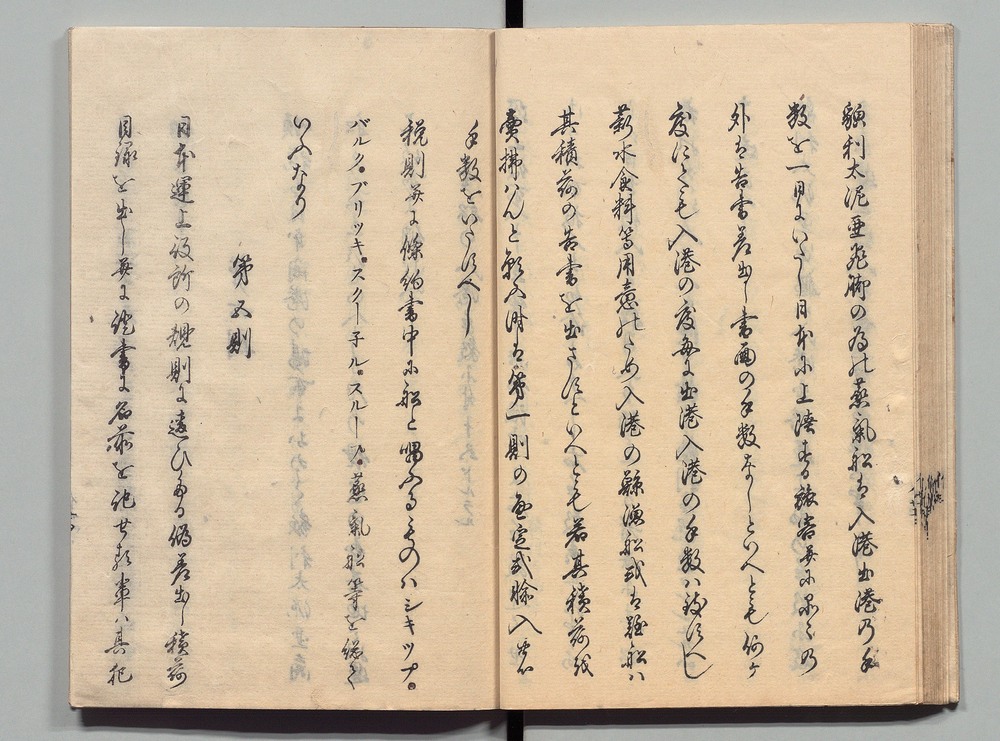 貌利太泥亜飛脚の為の蒸氣船は入港出港乃手
数を一同にいたし日本に上陸する旅客并に品々の
外は告書差出し書面の手数なしといへとも何ケ
度にても入港の度毎に出港入港の手数ハ致すへし
薪水食料等用意のため入港の鯨漁船或は難船ハ
其積荷の告書を出さすといへとも若其積荷を
賣拂ハんと願ふ時は第一則の通定式臨入
手数をいたすへし
税則并に條約書中に船と唱ふるものハシキップ。
バルク。ブリッキ。スクー子ル。スループ。蒸氣船等を総て
いふなり
第五則
日本運上役所の規則に違ひたる偽差出し積荷
目録を出し并に證書に名前を記せる輩ハ其犯